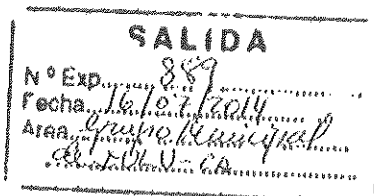 SALIDA
Nº Exp. 889
Fecha 16/07/2014
Area Grupo Municipal
de IULV-CA